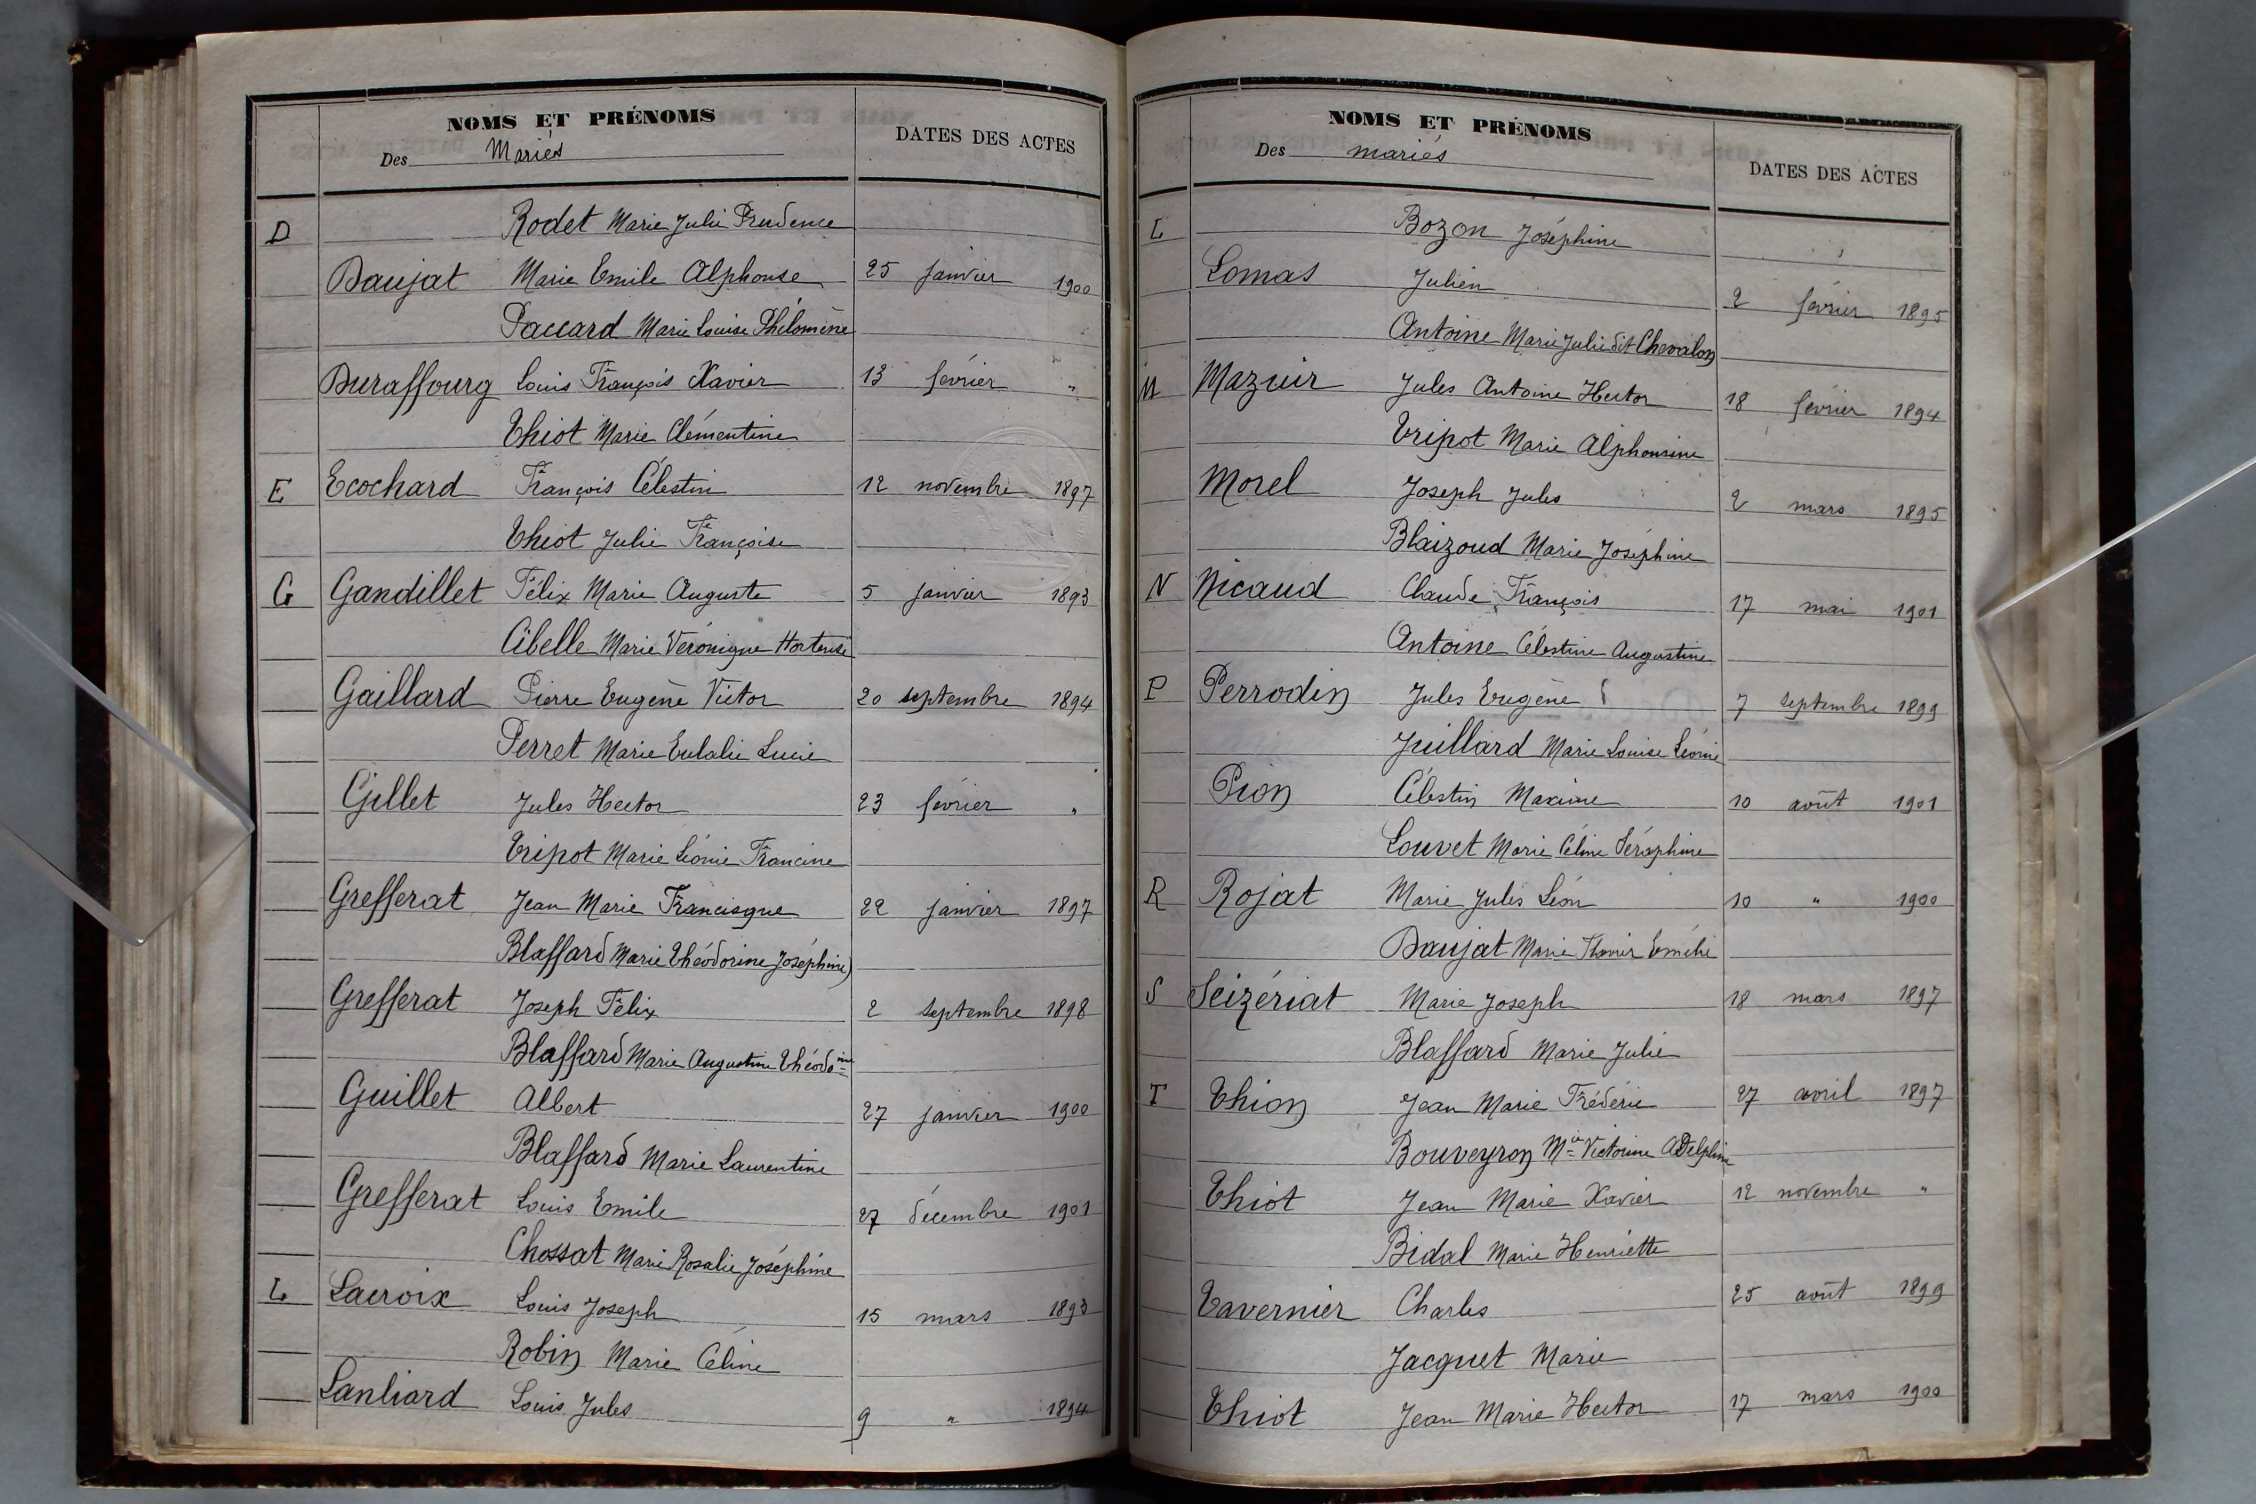 NOMS ET PRÉNOMS
Des Mariés
DATES DES ACTES
D Rodet Marie Julie Prudence
Daujat Marie Emile Alphonse 25 janvier 1900
Paccard Marie Louise Philomène
Duraffourg Louis François Xavier 13 février "
Thiot Marie Clémentine
E Ecochard François Célestin 12 novembre 1897
Thiot Julie Françoise
G Gandillet Félix Marie Auguste 5 janvier 1893
Cibelle Marie Véronique Hortense
Gaillard Pierre Eugène Victor 20 septembre 1894
Perret Marie Eulalie Lucie
Gillet Jules Hector 23 février "
Tripot Marie Léonie Francine
Grefferat Jean Marie Francisque 22 janvier 1897
Blaffard Marie Théodorine Joséphine
Grefferat Joseph Félix 2 septembre 1898
Blaffard Marie Augustine Théodo=ine
Guillet Albert 27 janvier 1900
Blaffard Marie Laurentine
Grefferat Louis Emile 27 décembre 1901
Chossat Marie Rosalie Joséphine
L Lacroix Louis Joseph 15 mars 1893
Robin Marie Céline
Lanliard Louis Jules 9 " 1894
NOMS ET PRÉNOMS
Des mariés
DATES DES ACTES
L Bozon Joséphine
Lomas Julien 2 février 1895
Antoine Marie Julie dit Chevalon
M Mazuir Jules Antoine Hector 18 février 1894
Tripot Marie Alphonsine
Morel Joseph Jules 2 mars 1895
Blaizoud Marie Joséphine
N Nicaud Claude François 17 mai 1901
Antoine Célestine Augustine
P Perrodin Jules Eugène 7 septembre 1899
Juillard Marie Louise Léonie
Pion Célestin Maxime 10 août 1901
Louvet Marie Céline Séraphine
R Rojat Marie Jules Léon 10 " 1900
Daujat Marie Emélie
S Seizériat Marie Joseph 18 mars 1897
Blaffard Marie Julie
T Thion Jean Marie Frédéric 27 avril 1897
Bouveyron Mie Victorine Adelphine
Thiot Jean Marie Xavier 12 novembre "
Bidal Marie Henriette
Tavernier Charles 25 août 1899
Jacquet Marie
Thiot Jean Marie Hector 17 mars 1900